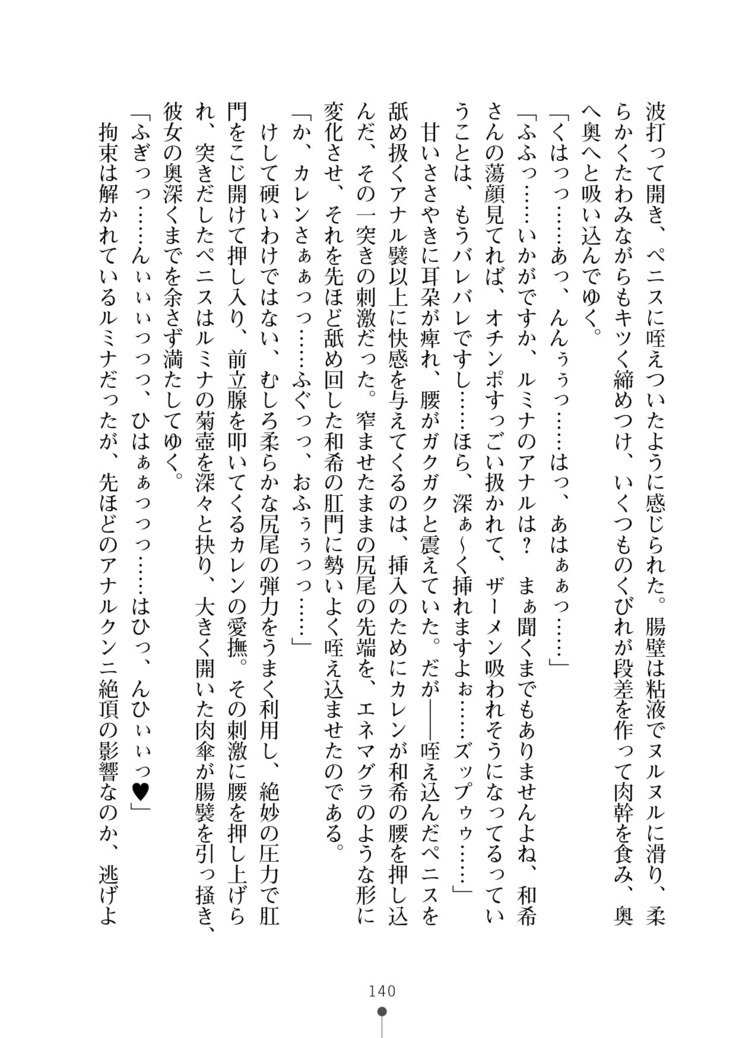 波打って開き、ペニスに咥えついたように感じられた。腸壁は粘液でヌルヌルに滑り、柔
らかくたわみながらもキツく締めつけ、いくつものくびれが段差を作って肉幹を食み、奥
へ奥へと吸い込んでゆく。
「くはっっ……あっ、んんぅぅっ……はっ、あはぁぁっ……」
「ふふっ……いかがですか、ルミナのアナルは？　まぁ聞くまでもありませんよね、和希
さんの蕩顔見てれば、オチンポすっごい扱かれて、ザーメン吸われそうになってるってい
うことは、もうバレバレですし……ほら、深ぁ～く挿れますよぉ……ズップゥゥ……」
　甘いささやきに耳朶が痺れ、腰がガクガクと震えていた。だが――咥え込んだペニスを
舐め扱くアナル襞以上に快感を与えてくるのは、挿入のためにカレンが和希の腰を押し込
んだ、その一突きの刺激だった。窄ませたままの尻尾の先端を、エネマグラのような形に
変化させ、それを先ほど舐め回した和希の肛門に勢いよく咥え込ませたのである。
「か、カレンさぁぁっっ……ふぐっっ、おふぅぅっっ……」
　けして硬いわけではない、むしろ柔らかな尻尾の弾力をうまく利用し、絶妙の圧力で肛
門をこじ開けて押し入り、前立腺を叩いてくるカレンの愛撫。その刺激に腰を押し上げら
れ、突きだしたペニスはルミナの菊壺を深々と抉り、大きく開いた肉傘が腸襞を引っ掻き、
彼女の奥深くまでを余さず満たしてゆく。
「ふぎっっ……んぃぃぃっっっ、ひはぁぁっっっ……はひっ、んひぃぃっ♥」
　拘束は解かれているルミナだったが、先ほどのアナルクンニ絶頂の影響なのか、逃げよ
140